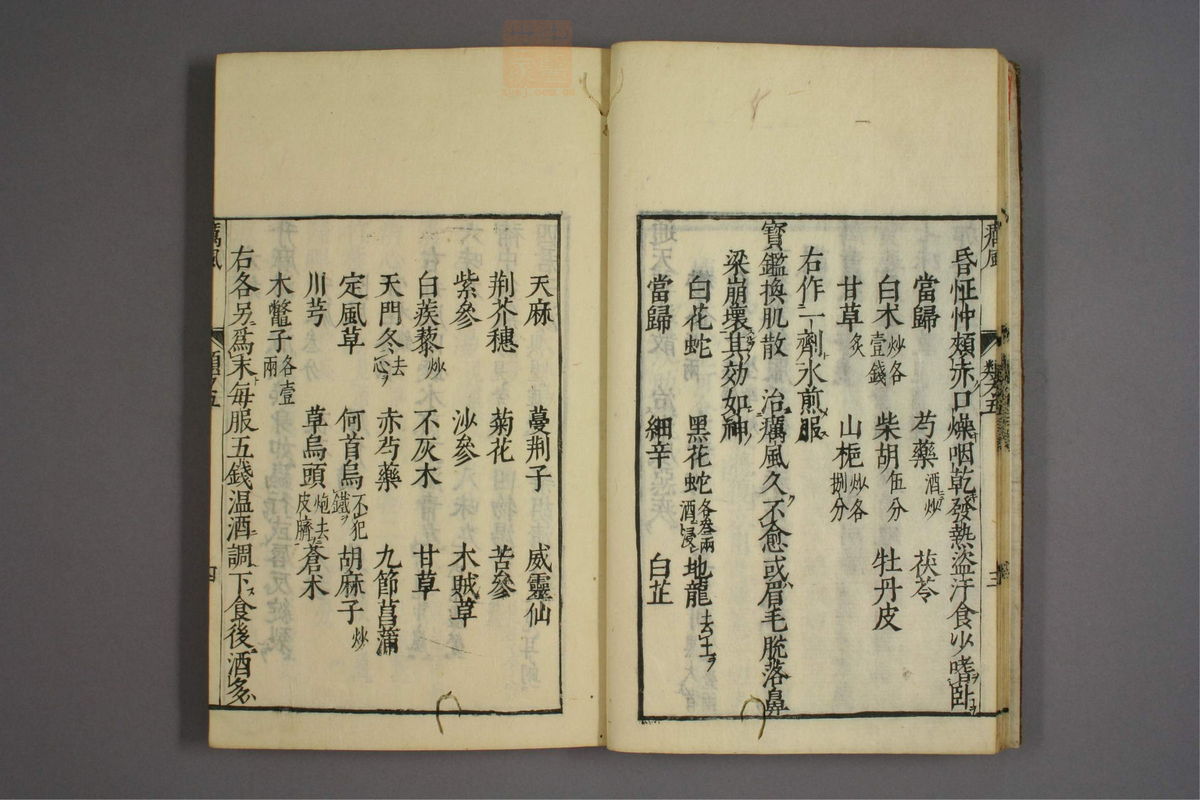 癘風
類之五
三
昏怔忡頰赤口燥咽乾發熱盜汗食少嗜臥
當歸 芍藥酒炒 茯苓
白朮炒各壹錢 柴胡伍分 牡丹皮
甘草炙 山梔炒各捌分
右作一劑水煎服
寶鑑換肌散 治癘風久不愈或眉毛脫落鼻
梁崩壞其効如神
白花蛇 黑花蛇各叁兩酒浸 地龍去土ヲ
當歸 細辛 白芷
天麻 蔓荆子 威靈仙
荆芥穗 菊花 苦參
紫參 沙參 木賊草
白蒺藜炒 不灰木 甘草
天門冬去心ヲ 赤芍藥 九節菖蒲
定風草 何首烏不犯鐵ヲ 胡麻子炒
川芎 草烏頭炮去皮臍 蒼朮
木鱉子各壹兩
右各另爲末每服五錢溫酒調下食後酒多
癘風
類之五
四